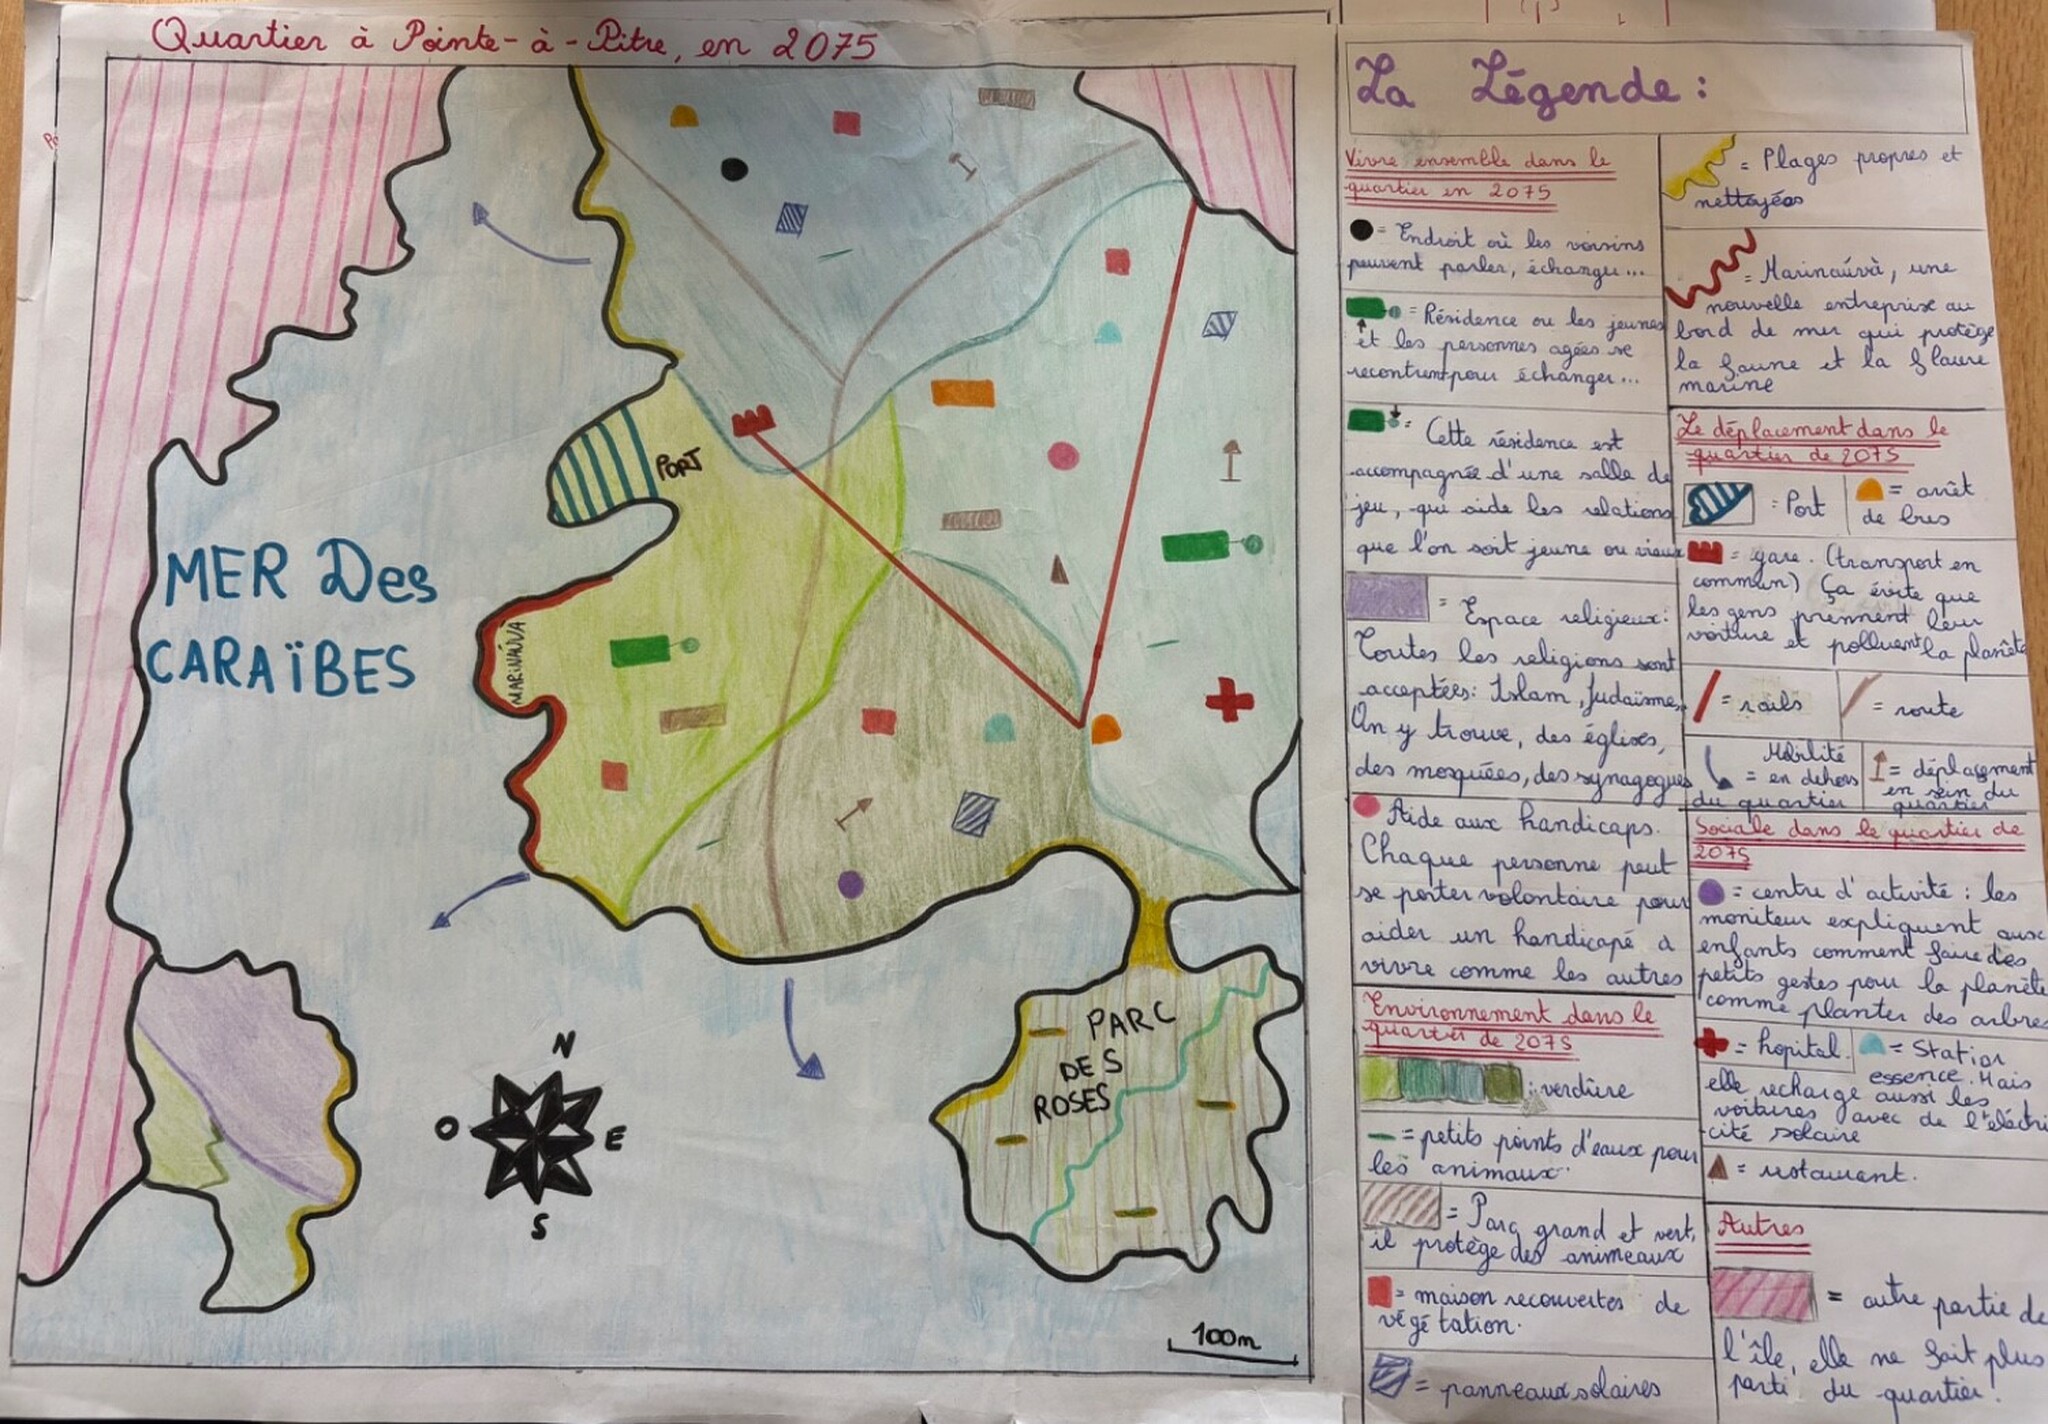 Quartier à Pointe-à-Pitre, en 2075
PORT
MER Des
CARAÏBES
MARINAÚVÀ
PARC
DES
ROSES
N
O
E
S
100m
La Légende :
Vivre ensemble dans le
quartier en 2075
= Endroit où les voisins
peuvent parler, échanger...
= Résidence ou les jeunes
et les personnes agées se
recontrent pour échanger...
= Cette résidence est
accompagnée d'une salle de
jeu, qui aide les relations
que l'on soit jeune ou vieux
= Espace religieux:
Toutes les religions sont
acceptées: Islam, Judaïsme,
On y trouve, des églises,
des mosquées, des synagogues
Aide aux handicaps.
Chaque personne peut
se porter volontaire pour
aider un handicapé à
vivre comme les autres
Environnement dans le
quartier de 2075
: verdure
= petits points d'eaux pour
les animaux
= Parc grand et vert,
il protège des animeaux
= maison recouvertes de
végétation.
= panneaux solaires
= Plages propres et
nettoyées
= Marinaúvà, une
nouvelle entreprise au
bord de mer qui protège
la faune et la flaure
marine
Le déplacement dans le
quartier de 2075
= Port
= arrêt
de bus
= gare. (transport en
commun) Ça évite que
les gens prennent leur
voiture et polluent la planète
= rails
= route
Mobilité
= en dehors
du quartier
= déplacement
en sein du
quartier
Sociale dans le quartier de
2075
= centre d'activité : les
moniteur expliquent aux
enfants comment faire des
petits gestes pour la planète
comme planter des arbres
= hopital.
= Station
essence. Mais
elle recharge aussi les
voitures avec de l'éléctri
-cité solaire
= restaurant.
Autres
= autre partie de
l'île, elle ne fait plus
parti du quartier.